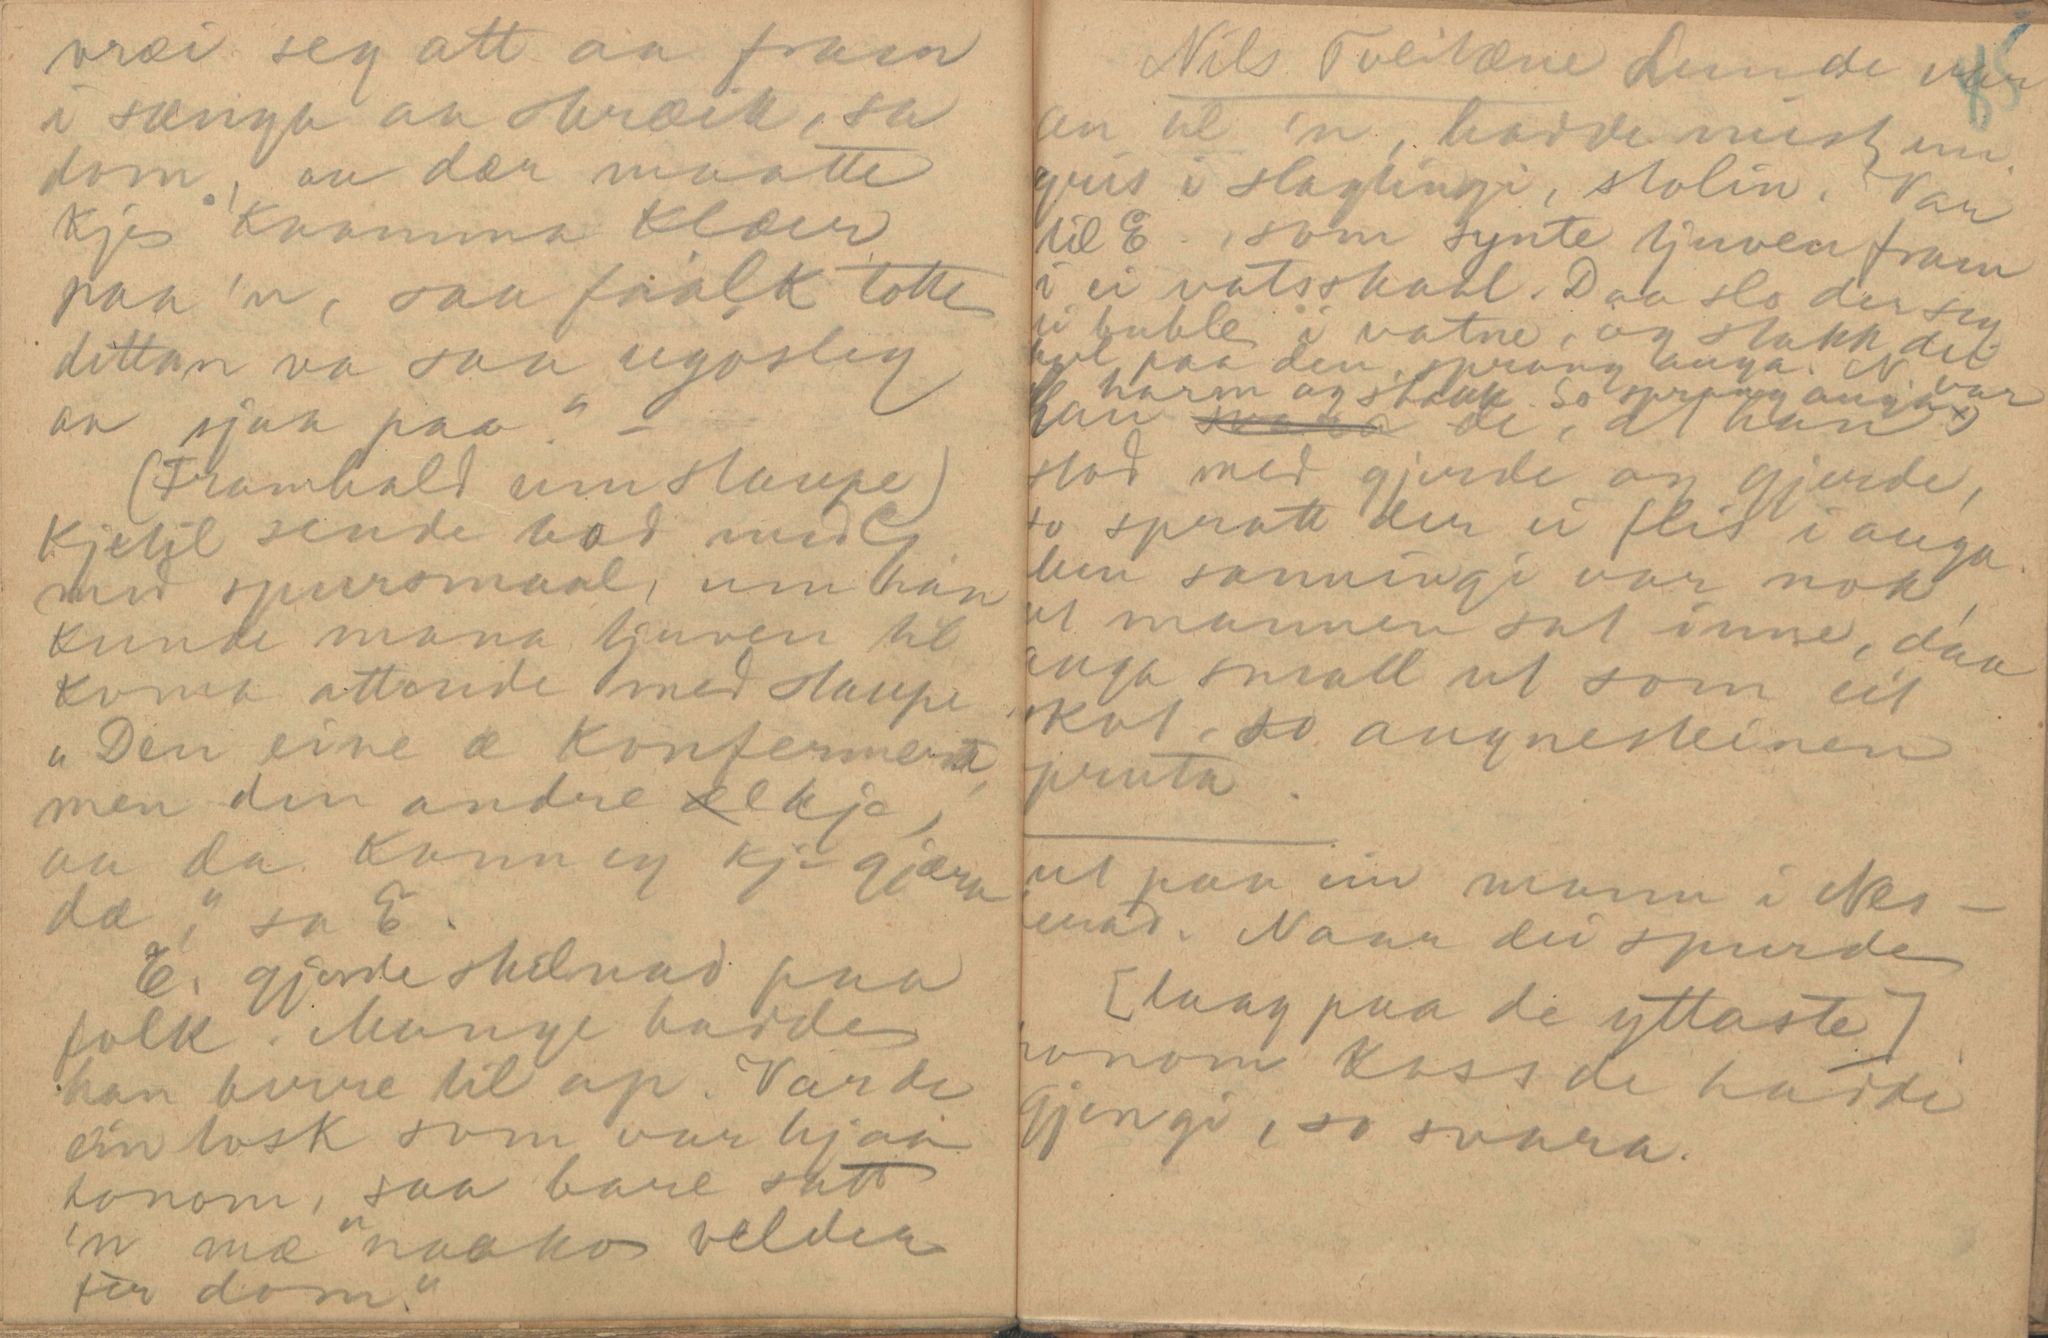 vræi seg att aa fram
i sænga aa skræik, sa
dom, aa dær maatte
kje kaamma klæir
paa 'n, saa faalk totte
dittan va saa ugosleg
aa sjaa paa." –
(Framhald um staupe)
Kjetil sende bod med G
med spursmaal, um han
kunde mana tjuven til
koma attende med staupe.
"Den eine æ konfermera,
men den andre æ kje,
aa da kann eg kje gjæra
dæ," sa E.
E. gjorde skilnad paa
folk. Mange hadde
han berre til ap. Var de
ein tosk som var hjaa
honom, saa bare satt
'n mæ "naako velder
fir dom."
85
Nils Tveitæne Lunde var
en til 'n, hadde mist ein
gris i slagtingi, stolin. Var
til E., som synte tjuven fram
i ei vatsskaal. Daa slo der seg
ei buble i vatne, og stakk dei
hol paa den, sprang auga. N var
harm og stakk. So sprang auga
han de, at han
stod med gjerde og gjerde,
so spratt der ei flis i auga.
Men sanningi var nok,
at mannen sat inne, daa
auga small ut som eit
skot, so augnesteinen
spruta.
ut paa ein mann i Nes-
herad. Naar dei spurde
[laag paa de yttaste]
honom koss de hadde
gjengi, so svara.